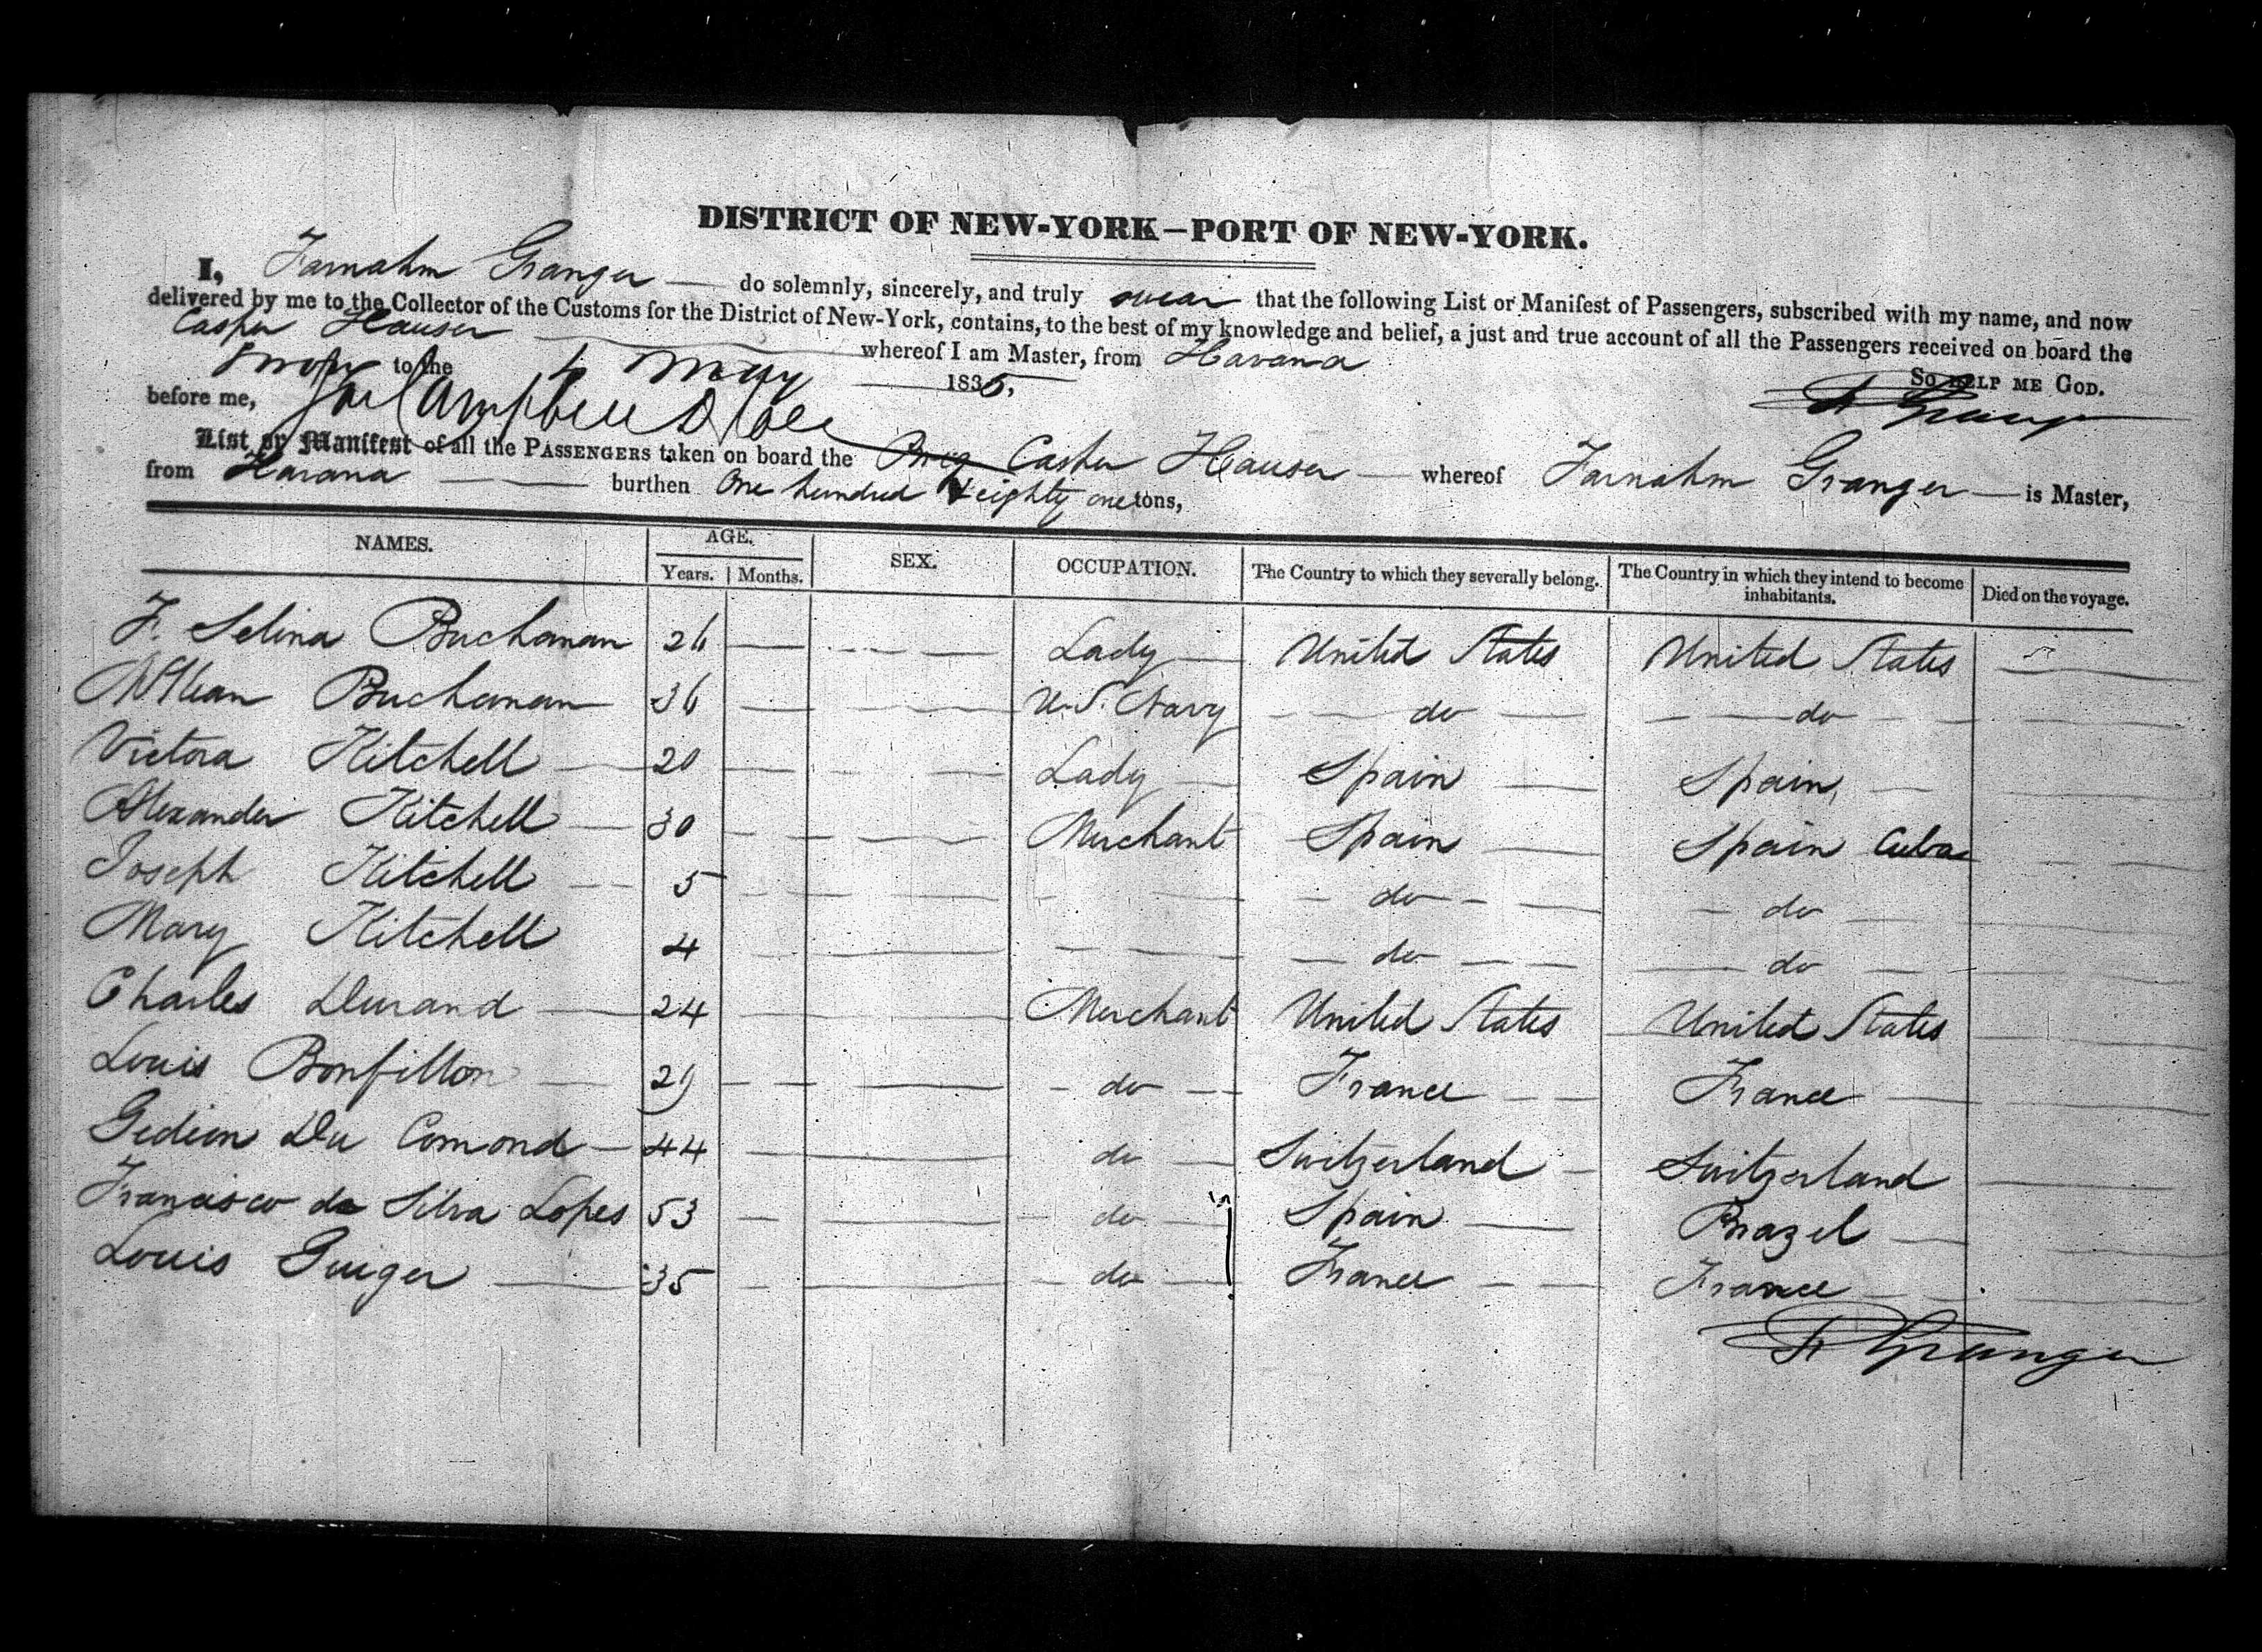 DISTRICT OF NEW-YORK—PORT OF NEW-YORK.
I, Farnahm Granger do solemnly, sincerely, and truly swear that the following List or Manifest of Passengers, subscribed with my name, and now
delivered by me to the Collector of the Customs for the District of New-York, contains, to the best of my knowledge and belief, a just and true account of all the Passengers received on board the
Casper Hauser whereof I am Master, from Havana
Sworn to the May 1835, So HELP ME GOD.
before me, Granger
List or Manifest of all the PASSENGERS taken on board the Brig Casper Hauser whereof Farnahm Granger is Master,
from Havana burthen One hundred & eighty one tons,
NAMES. AGE. SEX. OCCUPATION. The Country to which they severally belong. The Country in which they intend to become inhabitants. Died on the voyage.
Years. Months.
F. Selina Buchanan 26 Lady United States United States
McKean Buchanan 36 U.S. Navy do do
Victora Kitchell 20 Lady Spain Spain,
Alexander Kitchell 30 Merchant Spain Spain Cuba
Joseph Kitchell 5 do do
Mary Kitchell 4 do do
Charles Durand 24 Merchant United States United States
Louis Bonfillon 29 do France France
Gedion Du Comond 44 do Switzerland Switzerland
Francisco da Silva Lopes 53 do Spain Brazel
Louis Guiger 35 do France France
F Granger